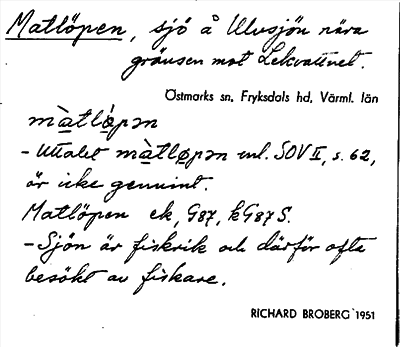 Matlöpen, sjö å Ulvsjön nära
gränsen mot Lekvattnet.
Östmarks sn, Fryksdals hd, Värml. län
màtlǿpən
– Uttalet màtlø̀pən enl. SOV II, s. 62,
är icke genuint.
Matlöpen ek, G87, kG87S.
– Sjön är fiskrik och därför ofta
besökt av fiskare.
RICHARD BROBERG 1951